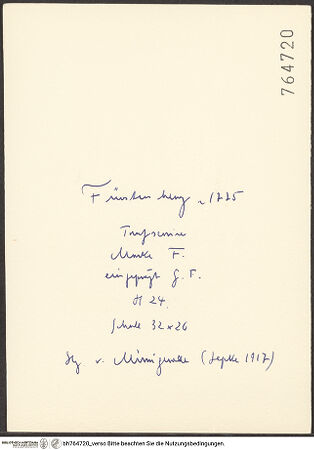 764720
Fürstenberg ~ 1775
Marke F.
eingeprägt G. F.
H 24
Schale 32 x 26
Slg v. (Lepke 1917)
bh764720_verso Bitte beachten Sie die Nutzungsbedingungen.